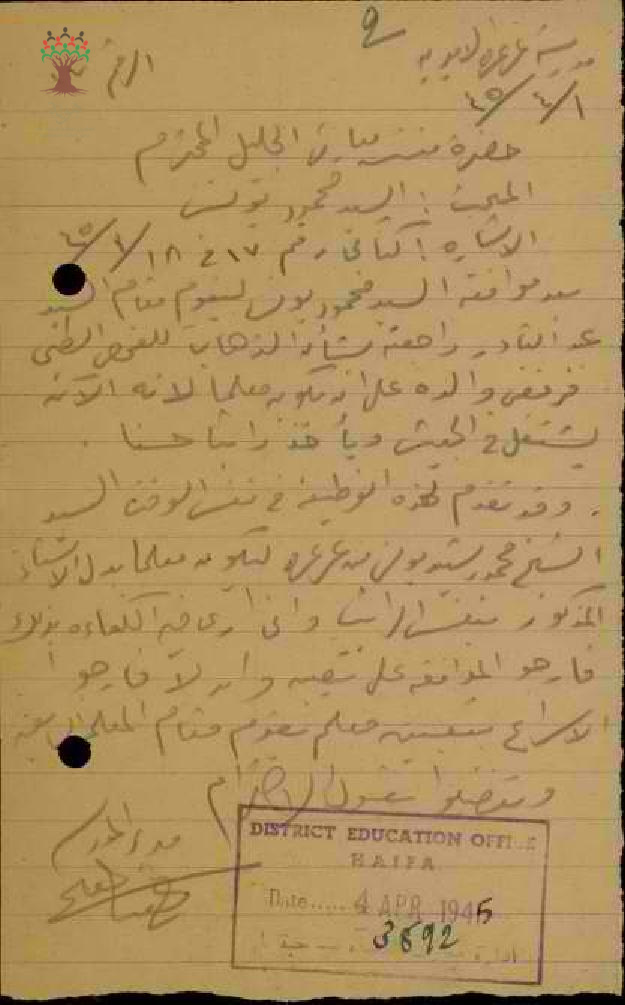 مدرسة عرعره الاميريه
الرقم
١/٤/٤٥
حضرة مفتش معارف الجليل المحترم
المبحث : السيد محمود يونس
الاشاره : كتابي رقم ١٧ في ١٨/ /٤٥
بعد موافقة السيد محمود يونس ليقوم مقام السيد
عبد القادر راجعته بشأن الذهاب للفحص الطبي
فرفض والده على ان يكون معلما لانه الآن
يشتغل في الجيش ويأخذ راتبا حسنا .
. وقد تقدم لهذه الوظيفة في نفس الوقت السيد
الشيخ محمد يونس من عرعره ليكون معلما بدل الاستاذ
المذكور بنفس الراتب واني ارى فيه الكفاءه بذلك
فارجو الموافقه على تعيينه وان لا فارجو
الاسراع بتعيين معلم يقوم مقام المعلم
وتفضلوا بقبول الاحترام
مدير المدرسة
DISTRICT EDUCATION OFFICE
HAIFA
Date..... 4 APR 1945
3692